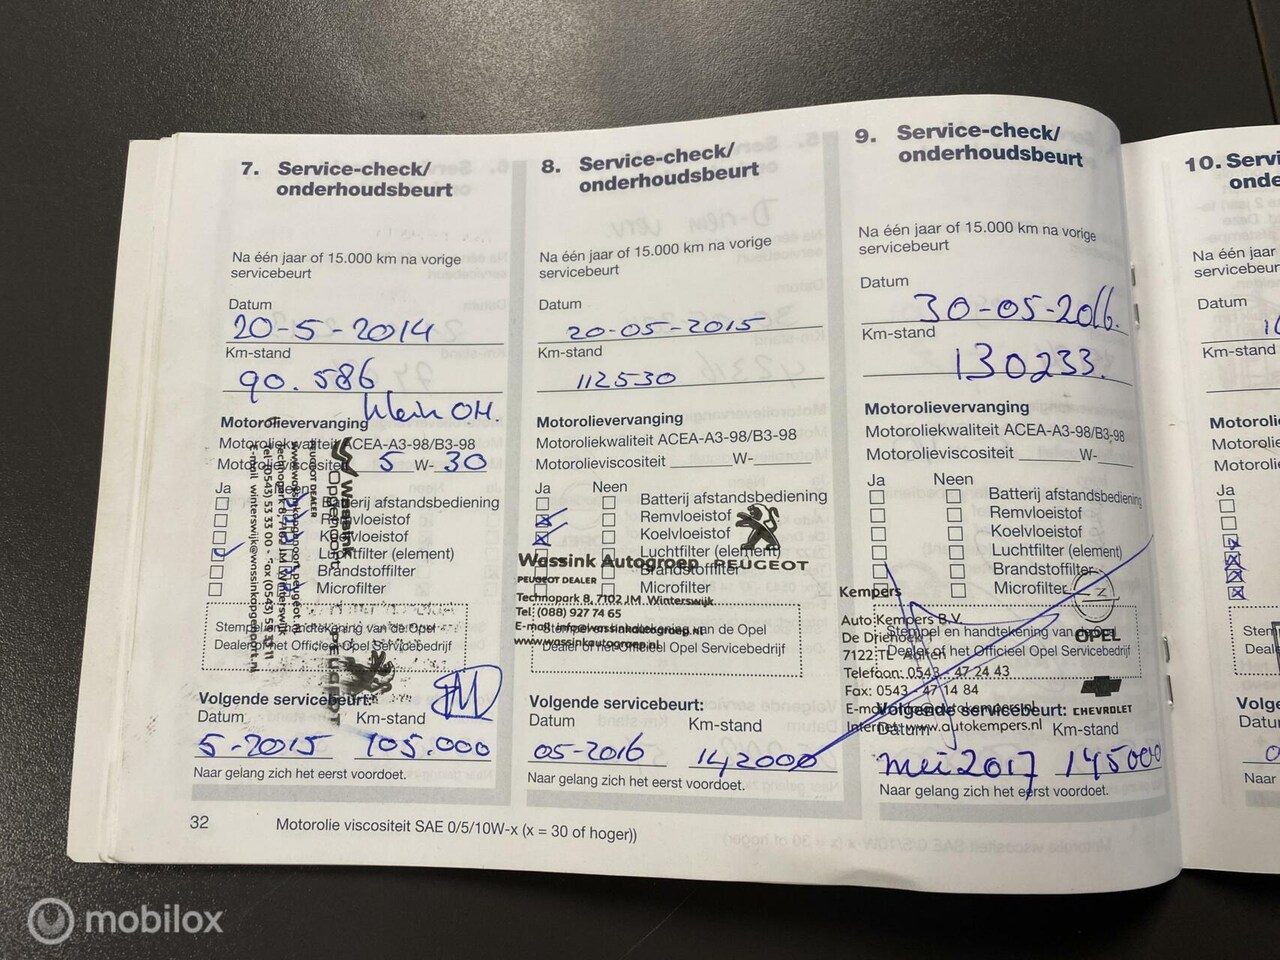 7. Service-check/
onderhoudsbeurt
Na één jaar of 15.000 km na vorige
servicebeurt
Datum
20-5-2014
Km-stand
90.586
klein OH.
Motorolievervanging
Motoroliekwaliteit ACEA-A3-98/B3-98
Motorolieviscositeit 5 W- 30
Ja Neen
Batterij afstandsbediening
Remvloeistof
Koelvloeistof
Luchtfilter (element)
Brandstoffilter
Microfilter
Stempel en handtekening van de Opel
Dealer of het Officieel Opel Servicebedrijf
wassink
PEUGEOT DEALER
PEUGEOT
Volgende servicebeurt:
Datum Km-stand
5-2015 105.000
Naar gelang zich het eerst voordoet.
8. Service-check/
onderhoudsbeurt
Na één jaar of 15.000 km na vorige
servicebeurt
Datum
20-05-2015
Km-stand
112530
Motorolievervanging
Motoroliekwaliteit ACEA-A3-98/B3-98
Motorolieviscositeit W-
Ja Neen
Batterij afstandsbediening
Remvloeistof
Koelvloeistof
Luchtfilter (element)
Brandstoffilter
Microfilter
Wassink Autogroep PEUGEOT
PEUGEOT DEALER
Technopark 8, 7102 JM Winterswijk
Tel: (088) 927 74 65
E-mail: info@wassinkautogroep.nl
www.wassinkautogroep.nl
Stempel en handtekening van de Opel
Dealer of het Officieel Opel Servicebedrijf
Volgende servicebeurt:
Datum Km-stand
05-2016 142000
Naar gelang zich het eerst voordoet.
9. Service-check/
onderhoudsbeurt
Na één jaar of 15.000 km na vorige
servicebeurt
Datum
30-05-2016.
Km-stand
130233.
Motorolievervanging
Motoroliekwaliteit ACEA-A3-98/B3-98
Motorolieviscositeit W-
Ja Neen
Batterij afstandsbediening
Remvloeistof
Koelvloeistof
Luchtfilter (element)
Brandstoffilter
Microfilter
Kempers
Auto Kempers B.V.
De Driehoek 1
7122 TL Aalten
Telefoon: 0543 - 47 24 43
Fax: 0543 - 47 14 84
Internet: www.autokempers.nl
OPEL
CHEVROLET
Stempel en handtekening van de Opel
Dealer of het Officieel Opel Servicebedrijf
Volgende servicebeurt:
Datum Km-stand
mei 2017 145000
Naar gelang zich het eerst voordoet.
10. Servi
onde
Na één jaar
servicebeur
Datum
Km-stand
Motoroli
Motorolie
Motorolie
Ja
Stem
Deale
Volge
Datu
Naar
32
Motorolie viscositeit SAE 0/5/10W-x (x = 30 of hoger))
mobilox